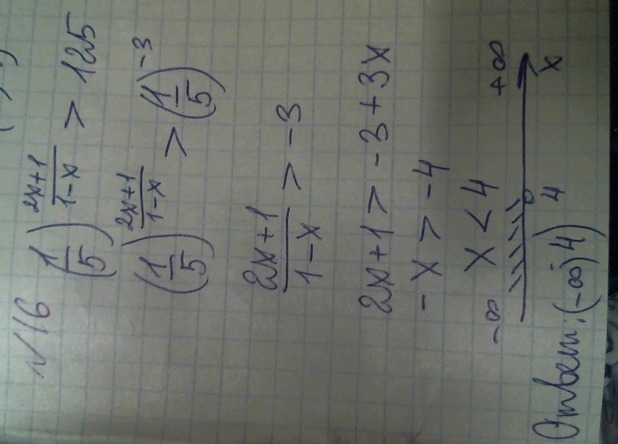 √16 (1/5)^((2x+1)/(1-x)) > 125
(1/5)^((2x+1)/(1-x)) > (1/5)^(-3)
(2x+1)/(1-x) > -3
2x+1 > -3+3x
-x > -4
x < 4
-∞ 4 +∞ x
Ответ: (-∞; 4)